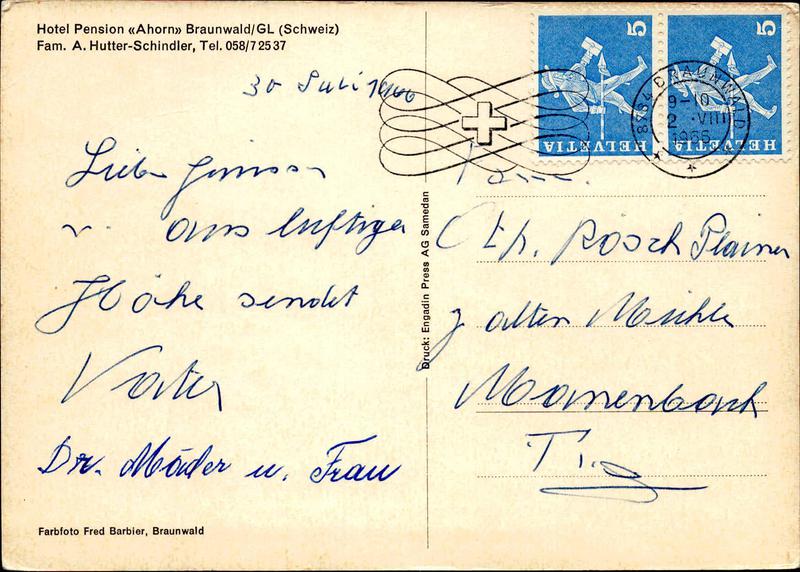 Hotel Pension «Ahorn» Braunwald/GL (Schweiz)
Fam. A. Hutter-Schindler, Tel. 058/7 25 37
30 Juli 1966
Liebe
aus luftiger
Höhe sendet
Vater
Dr. Mäder u. Frau
Farbfoto Fred Barbier, Braunwald
Druck: Engadin Press AG Samedan
5
5
HELVETIA
HELVETIA
8784 BRAUNWALD
9-10
2. VIII
1966
Fam.
Rösch
z alten Mühle
Mannenbach
Tg